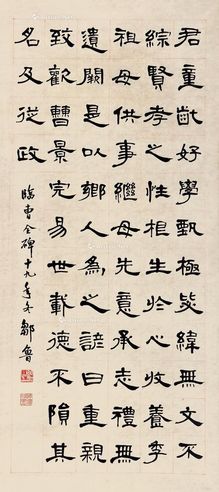 君童齔好學甄極毖緯無文不
綜賢孝之性根生於心收養季
祖母供事繼母先意承志禮無
遺闕是以鄉人為之諺曰重親
致歡曹景完易世載德不隕其
名及從政
臨曹全碑十九年冬鄒魯